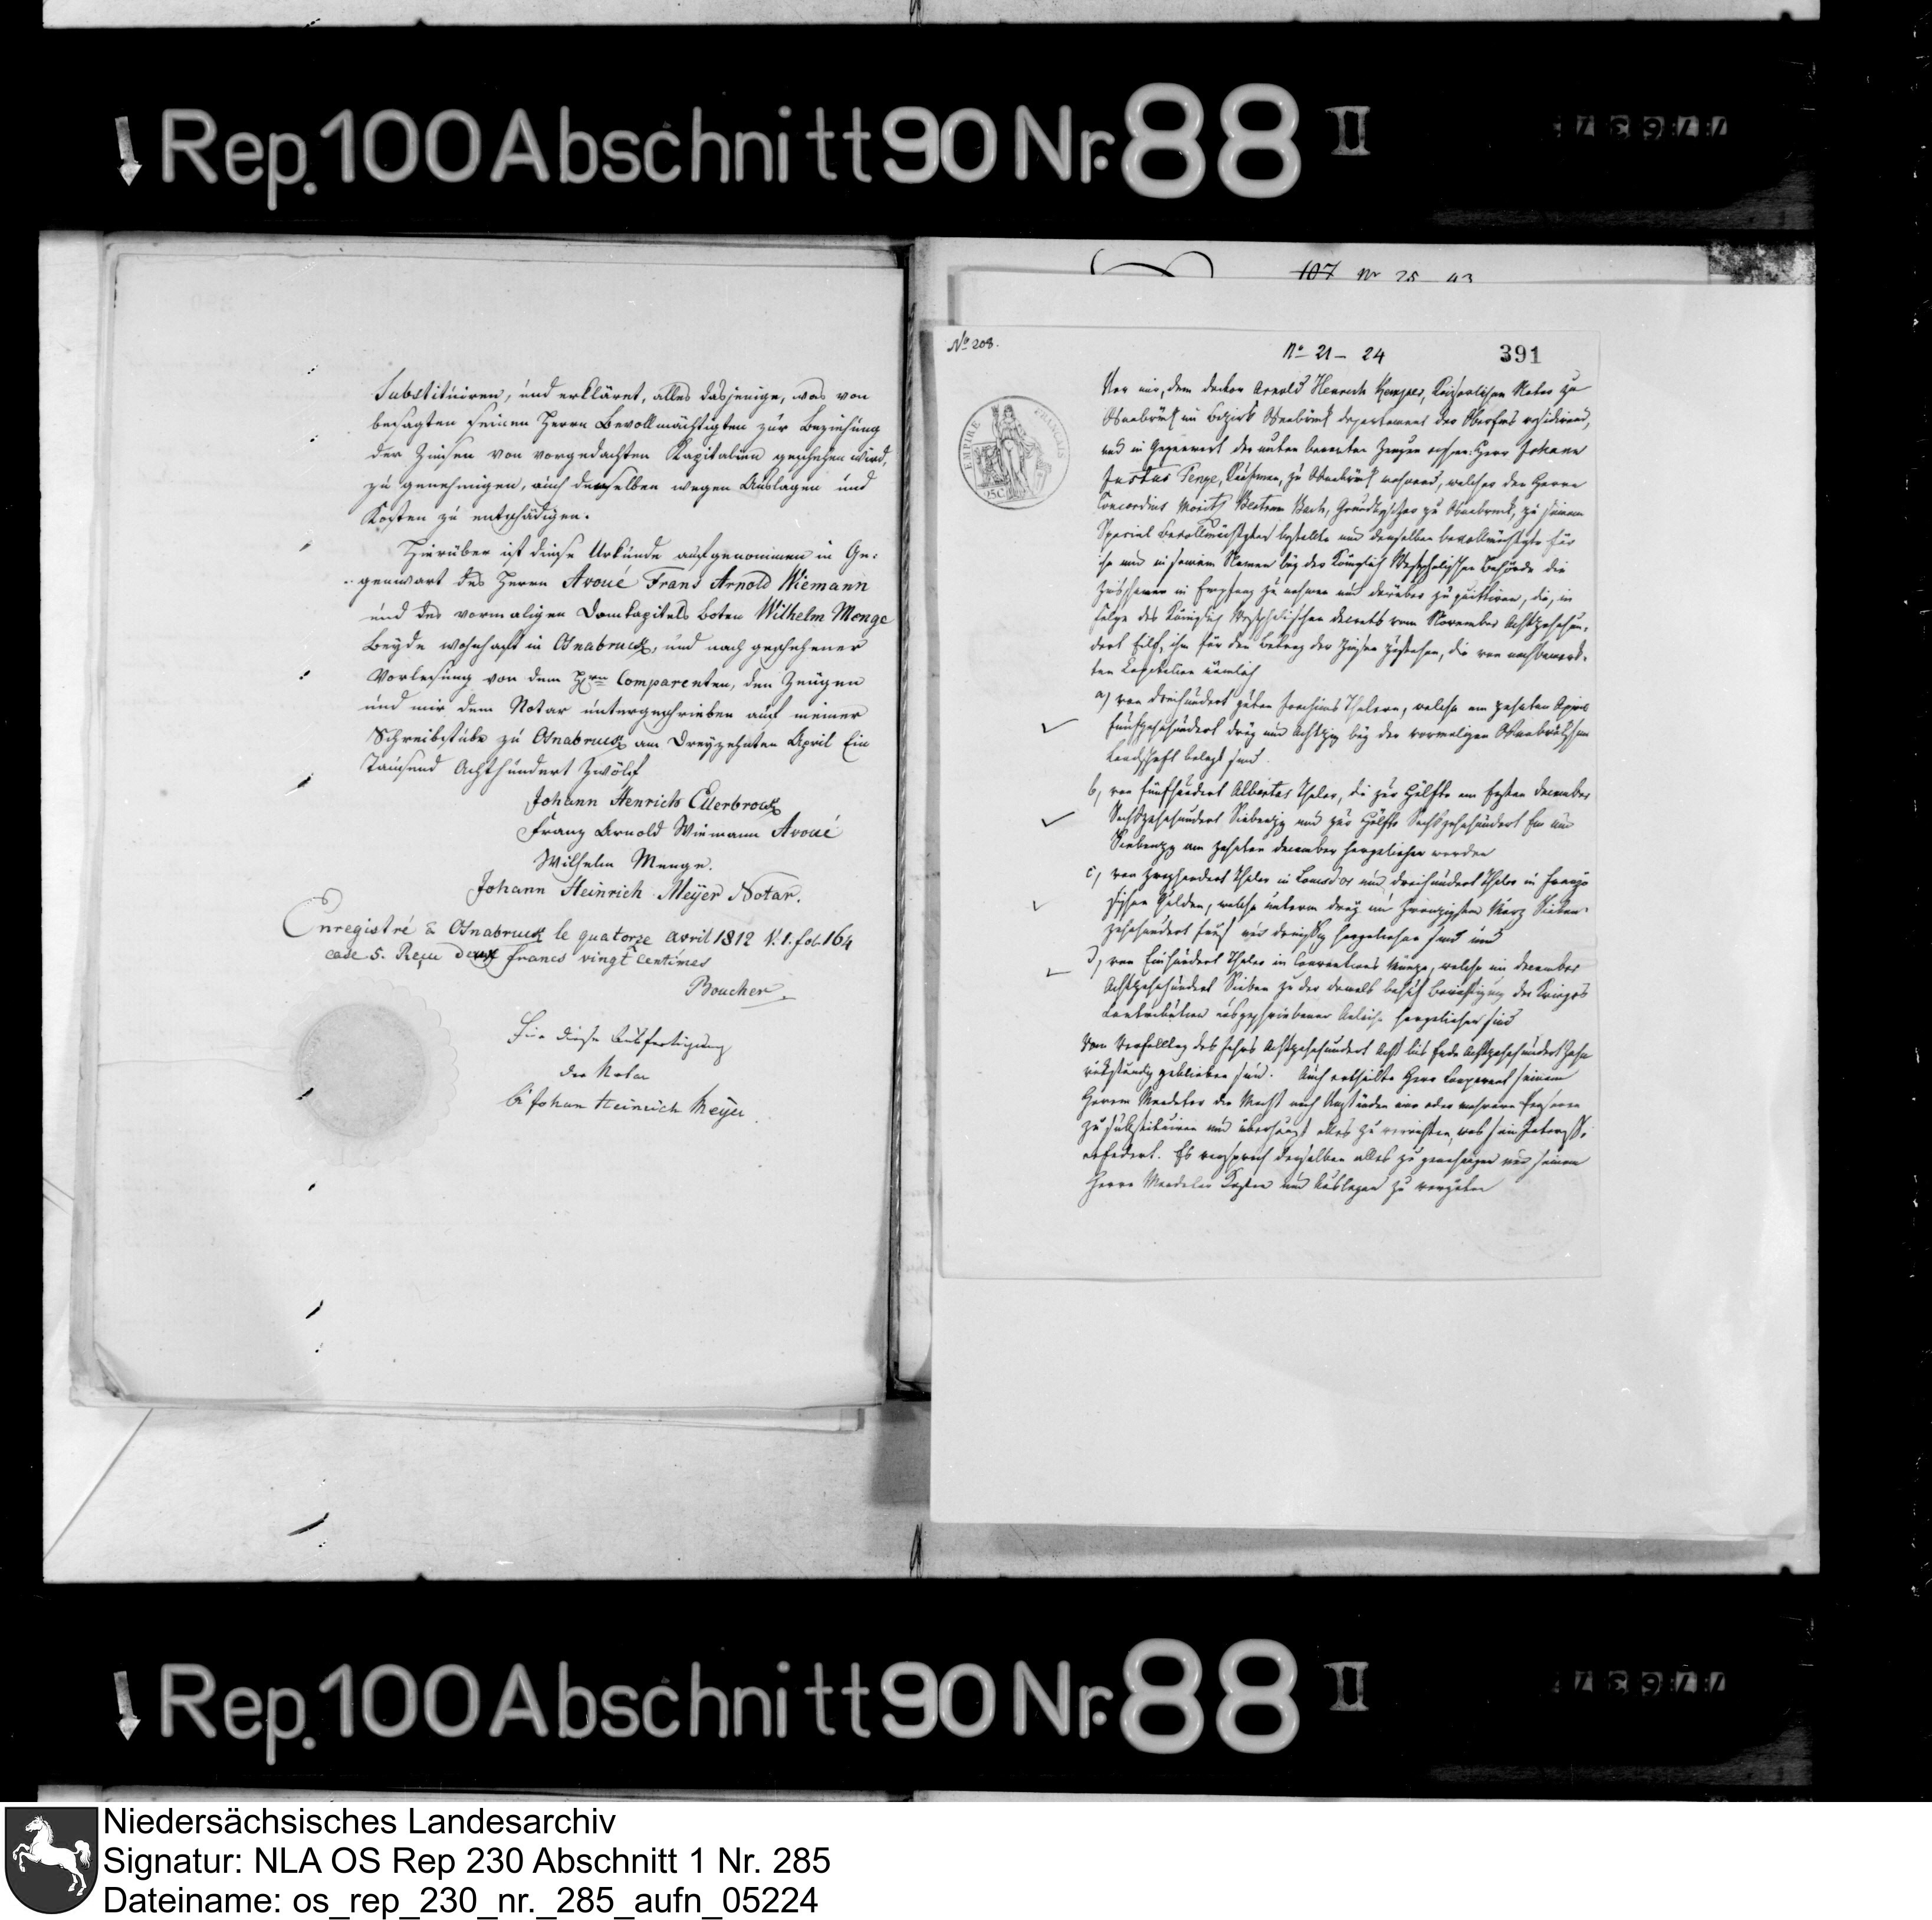 Rep. 100 Abschnitt 90 Nr. 88 II
77637
107 Nr 25 43
Substituiren, und erkläret, alles dasjenige, was von
besagten seinen Herrn Bevollmächtigten zur Beziehung
der Zinsen von vorgedachten Kapitalien geschehen wird,
zu genehmigen, auch denselben wegen Auslagen und
Kosten zu entschädigen.
Hierüber ist diese Urkunde aufgenommen in Ge:
genwart des Herrn Avoué Frans Arnold Wiemann
und des vormaligen Domkapitels boten Wilhelm Menge
Beyde wohnhaft in Osnabruck, und nach geschehener
Vorlesung von dem Hrn Comparenten, den Zeugen
und mir dem Notar untergeschrieben auf meiner
Schreibstube zu Osnabruck am Dreyzehnten April Ein
Tausend Achthundert Zwölf
Johann Henrich Ellerbrock
Franz Arnold Wiemann Avoué
Wilhelm Menge.
Johann Heinrich Meyer Notar.
Enregistré à Osnabruck le quatorze avril 1812 V. 1. fol. 164
case 5. Reçu deux francs vingt Centimes
Boucher
Für diese Ausfertigung
der Notar
Johan Heinrich Meyer
No 208.
No 21 - 24
391
EMPIRE FRANÇAIS
25C
Vor mir, dem doctor Arnold Henrich Kemper, Kaiserlichen Notar zu
Osnabrück im Bezirk Osnabrück departement der Oberems residirend,
und in Gegenwart der unten benannten Zeugen erschien Herr Johann
Justus Penge, Kaufman, zu Osnabrück wohnend, welcher den Herrn
Concordius Moritz Bertram Bach, zu Osnabrück, zu seinem
Special Bevollmächtigten bestellte und denselben bevollmächtigte für
ihn und in seinem Namen bey der Königlich Westphälischen Behörde die
in Empfang zu nehmen und darüber zu quittiren, die, in
Folge des Königlich Westphälischen decrets vom November Achtzehnhun-
dert Eilf, ihm für den Betrag der Zinsen zustehen, die von nachbenerk-
ten Kapitalien nämlich
a) von dreihundert guten Joachims Thalern, welche am zehnten April
Funfzehnhundert drey und Achtzig bey der vormaligen Osnabrückschen
Landschaft belegt sind
b, von Fünfhundert Albertus Thaler, die zur Hälfte am Ersten december
Sechszehnhundert Siebenzig und zur Hälfte Sechszehnhundert Ein und
Siebenzig am zehnten december hergeliehen worden
c, von Thaler in Louisd'or und dreihundert Thaler in Franzö
sischen Gulden, welche unterm drey und zwanzigsten März Sieben-
zehnhundert fünf und dreissig hergeliehen sind und
d, von Einhundert Thaler in Conventions Münze, welche im december
Achtzehnhundert Sieben zu der damals behuf Berichtigung der Krieges
Contribution ausgeschriebenen Anleihe hergeliehen sind
Vom Verfalltag des Jahrs Achtzehnhundert Acht bis Ende Achtzehnhundert Zehn
rückständig geblieben sind. Auch ertheilte Herr Comparent seinem
Herrn Mandatar die Macht nach Umständen eine oder mehrere Personen
zu substituiren und überhaupt alles zu verrichten, was sein Interesse
erfodert. Er versprach denselben alles zu genehmigen und seinem
Herrn Mandatar Kosten und Auslagen zu vergüten
Rep. 100 Abschnitt 90 Nr. 88 II
77637
Niedersächsisches Landesarchiv
Signatur: NLA OS Rep 230 Abschnitt 1 Nr. 285
Dateiname: os_rep_230_nr._285_aufn_05224